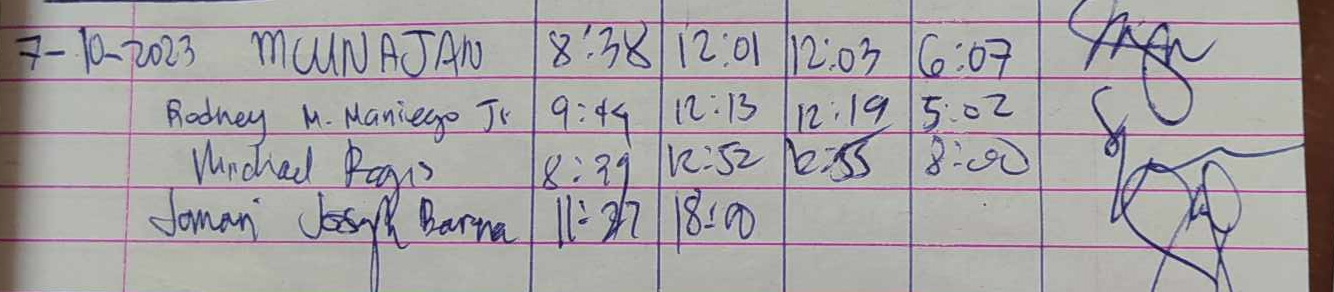 7-10-2023 MCUNAJAN 8:38 12:01 12:03 6:07
Rodney M. Maniego Jr 9:44 12:13 12:19 5:02
Michael Regis 8:39 12:52 12:55 8:00
Jomari Joseph Barma 11:37 18:00